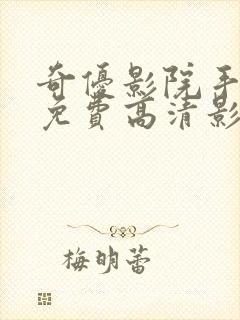 奇優影院手
免費高清影
梅明蕾